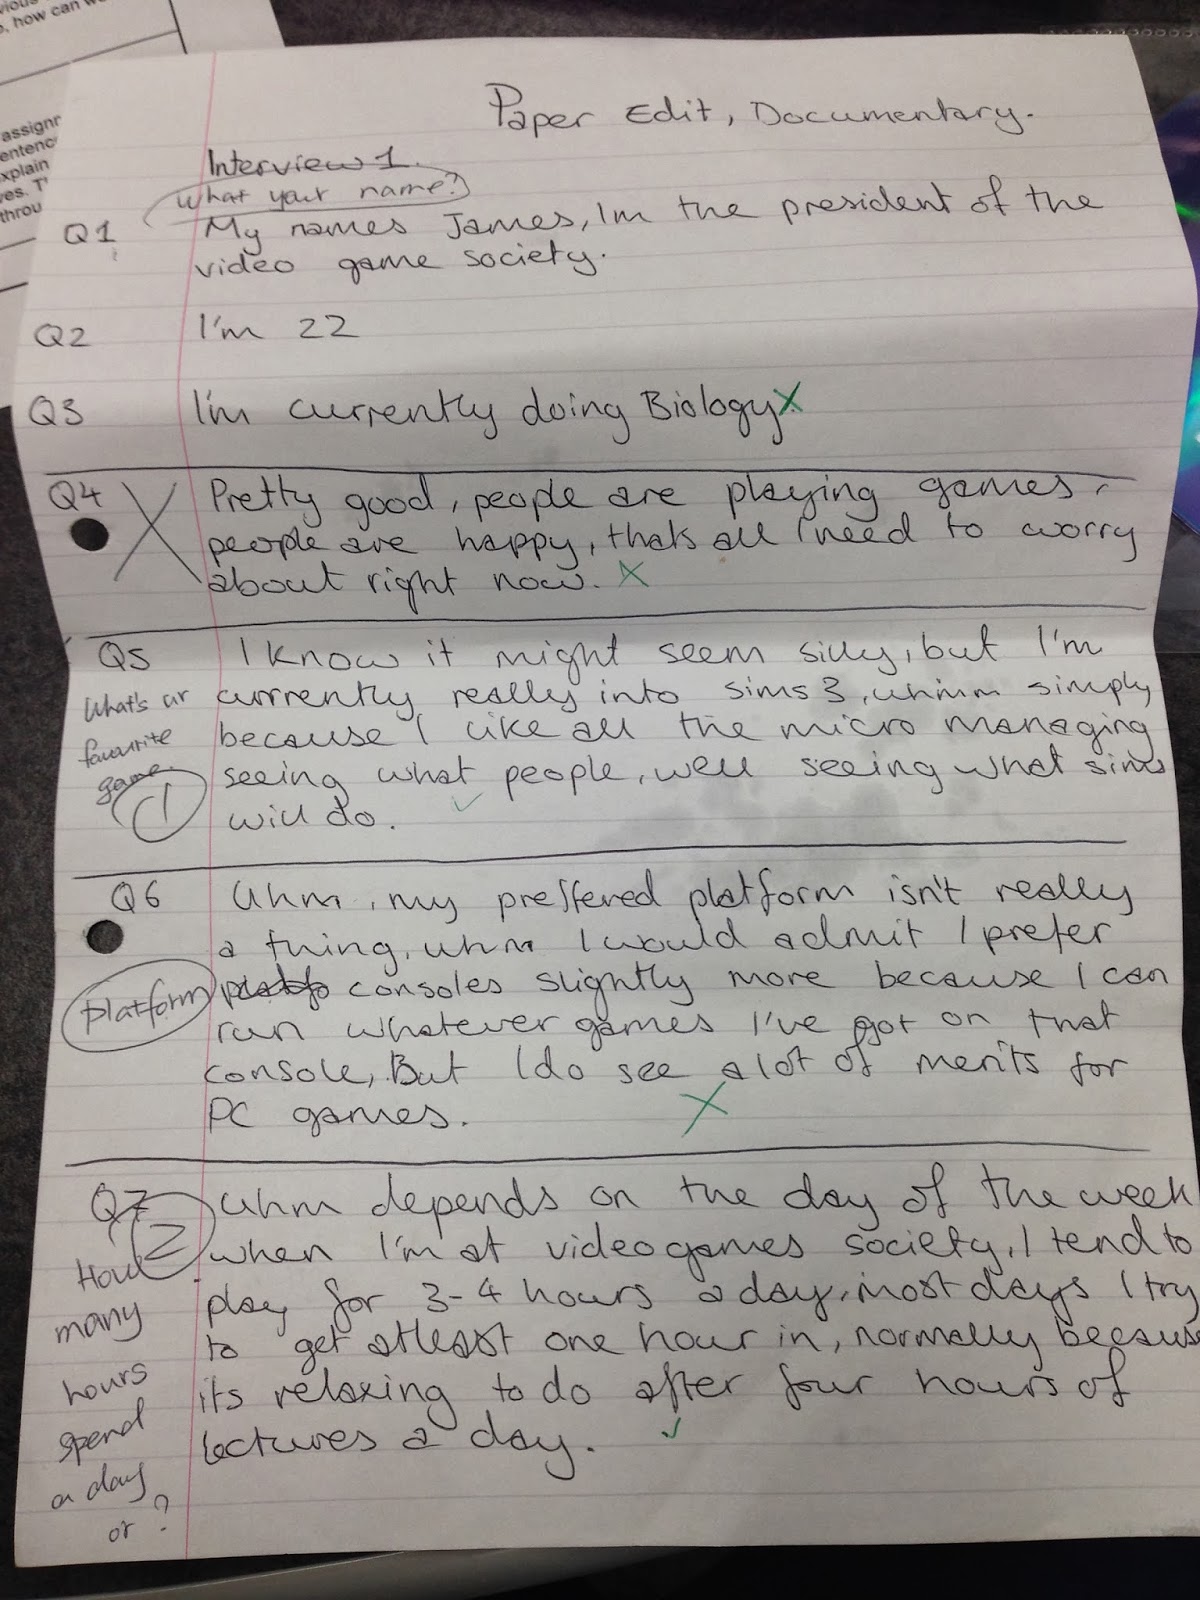 vious
, how can w
assignr
entenc
xplain
ves. T'
throu
Paper Edit, Documentary.
Interview 1.
What your name?
Q1 My names James, Im the president of the
video game society.
Q2 I'm 22
Q3 I'm currently doing Biology X
Q4 X Pretty good, people are playing games,
people are happy, thats all I need to worry
about right now. X
Q5 I know it might seem silly, but I'm
What's ur currently really into sims 3, uhmm simply
favourite because I like all the micro managing
game. seeing what people, well seeing what sims
1 will do. ✓
Q6 Uhm, my preffered platform isn't really
a thing, uhm I would admit I prefer
platform consoles slightly more because I can
run whatever games I've got on that
console, But I do see a lot of merits for
PC games. X
Q7 Uhm depends on the day of the week
2 when I'm at videogames society, I tend to
How play for 3-4 hours a day, most days I try
many to get atleast one hour in, normally because
hours its relaxing to do after four hours of
spend lectures a day. ✓
a day
or ?